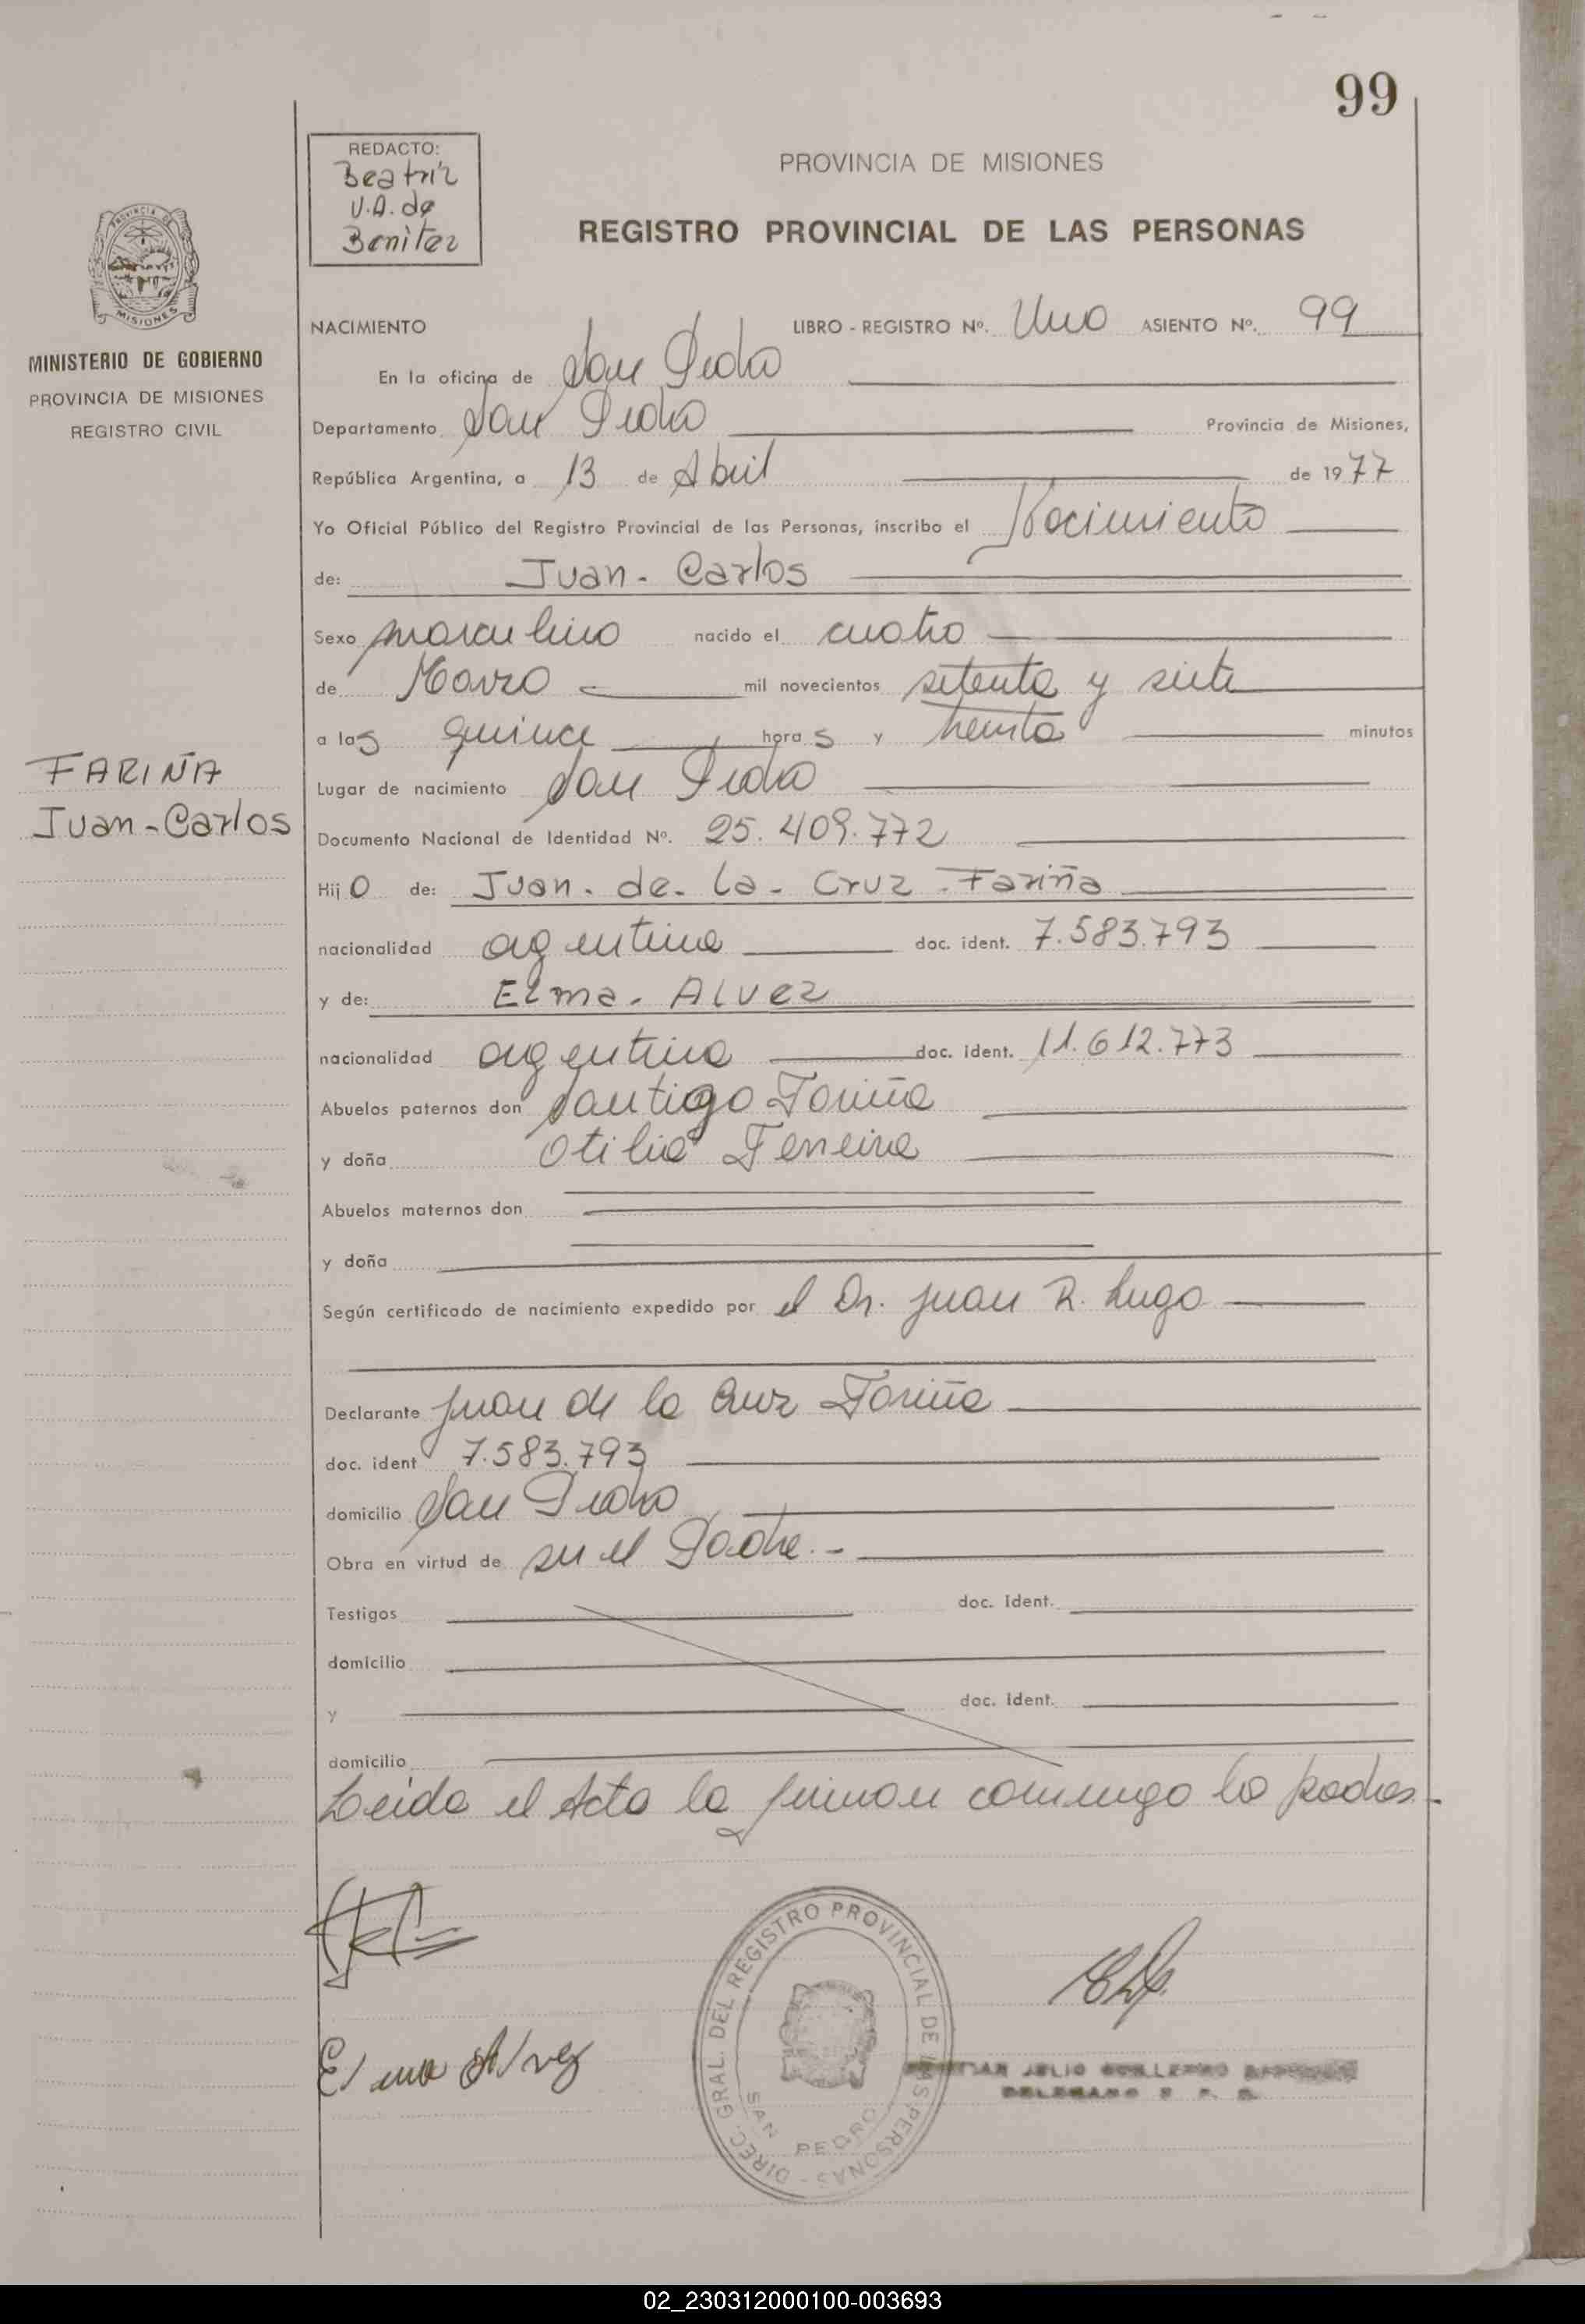 99
REDACTO:
Beatriz
V.A. de
Benitez
PROVINCIA DE MISIONES
REGISTRO PROVINCIAL DE LAS PERSONAS
PROVINCIA DE
MISIONES
MINISTERIO DE GOBIERNO
PROVINCIA DE MISIONES
REGISTRO CIVIL
FARIÑA
Juan-Carlos
NACIMIENTO LIBRO - REGISTRO Nº. Uno ASIENTO Nº. 99
En la oficina de San Pedro
Departamento San Pedro Provincia de Misiones,
República Argentina, a 13 de Abril de 1977
Yo Oficial Público del Registro Provincial de las Personas, inscribo el Nacimiento
de: Juan - Carlos
Sexo masculino nacido el cuatro
de Marzo mil novecientos setenta y siete
a las quince horas y treinta minutos
Lugar de nacimiento San Pedro
Documento Nacional de Identidad Nº. 25.409.772
Hijo de: Juan - de - la - Cruz - Fariña
nacionalidad argentina doc. ident. 7.583.793
y de: Elma - Alvez
nacionalidad argentina doc. ident. 11.612.773
Abuelos paternos don Santigo Fariña
y doña Otilia Ferreira
Abuelos maternos don
y doña
Según certificado de nacimiento expedido por el Dr. Juan R. Lugo
Declarante Juan de la Cruz Fariña
doc. ident 7.583.793
domicilio San Pedro
Obra en virtud de ser el Padre.-
Testigos doc. Ident.
domicilio
y doc. ident.
domicilio
Leida el Acta la firman conmigo los padres.-
Elma Alvez
DIREC. GRAL. DEL REGISTRO PROVINCIAL DE LAS PERSONAS -
SAN PEDRO
JULIO GUILLERMO
DELEGADO
02_230312000100-003693